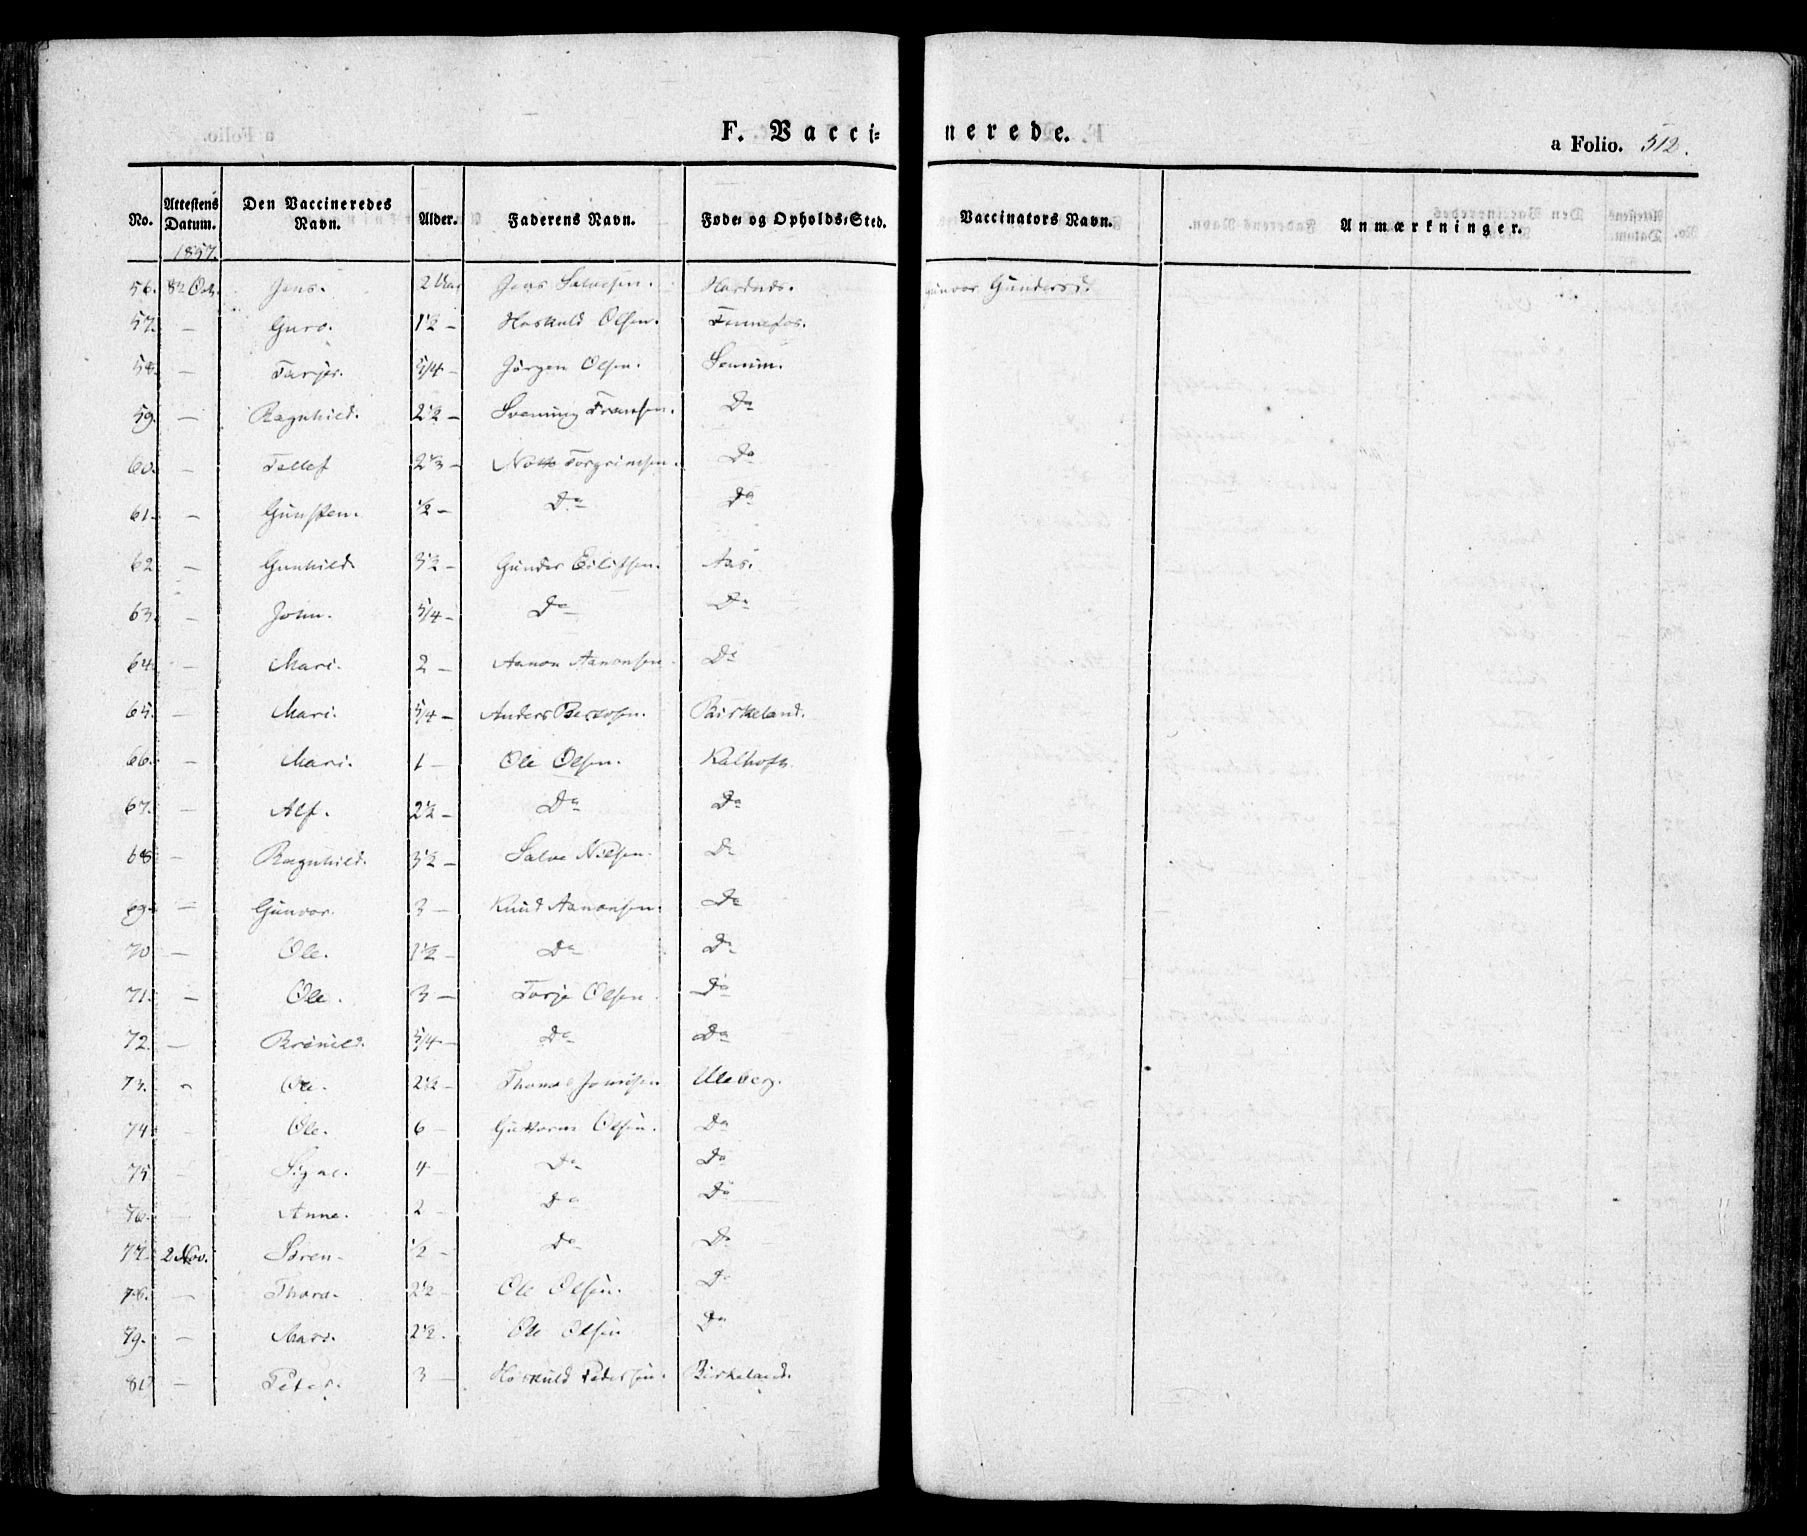 F. Vacci- nerede.
a Folio. 512.
No. Attestens Datum. Den Vaccineredes Navn. Alder. Faderens Navn. Føde- og Opholds-Sted. Vaccinators Navn. Anmærkninger.
1857.
56. Jens. 2 Jens Salvesen. Gunvor Gundersd.
57. — Guro. 1½ — Hoskuld Olsen. Fennefos.
58. — Tarjer. 5/4 — Jørgen Olsen. Senum.
59. — Ragnhild. 2½ — Svenning Fransen. Do
60. — Tellef 2⅓ — Notto Torgrimsen. Do
61. — Gunsten. ½ — Do Do
62 — Gunhild. 3½ — Gunder Eilifsen. Aas.
63. — John. 5/4 — Do Do
64. — Mari. 2 — Aanon Aanonsen. Do
65. — Mari. 5/4 — Anders Do Birkeland.
66. — Mari. 1 — Ole Olsen. Kalhoft.
67. — Alf. 2½ — Do Do
68 — Ragnhild. 3½ — Salve Nilsen. Do
69. — Gunvor. 3 — Knud Aanonsen. Do
70 — Ole. 1½ — Do Do
71. — Ole. 3 — Torje Olsen. Do
72. — Brønild. 5/4 — Do Do
73. — Ole. 2½ — Thomas Uleberg.
74 — Ole. 6 — Guttorm Olsen. Do
75 — Signe. 4 — Do Do
76. — Anne. 2 — Do Do
77. 2 Nov. Søren. ½ — Do Do
78. — Thora. 2½ — Ole Olsen. Do
79. — Mari. 2½. Ole Olsen Do
80 — Peter. 3 — Hoskuld Pedersen. Birkeland.